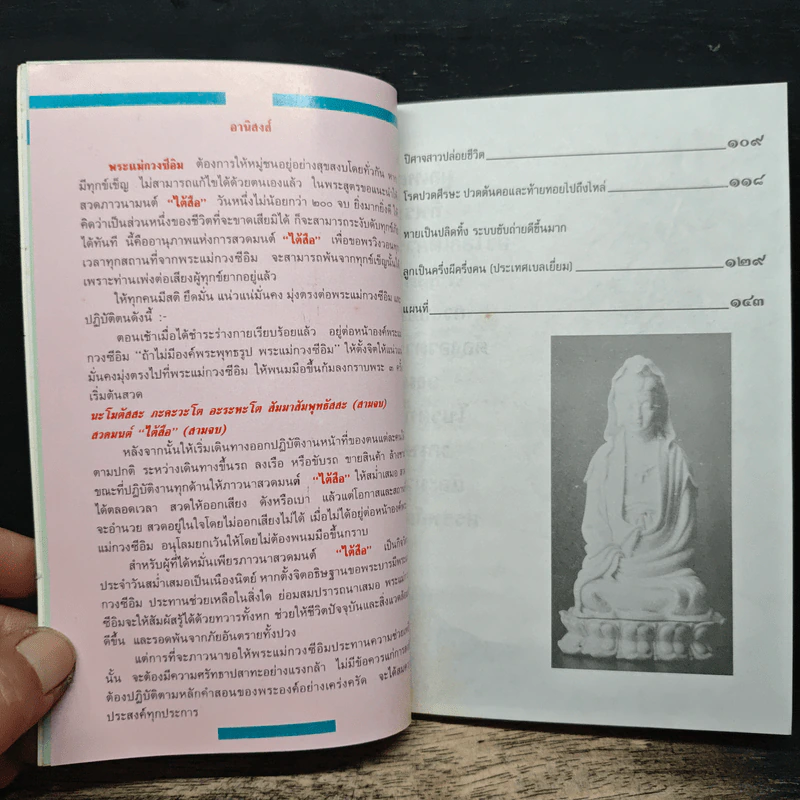 อานิสงส์
พระแม่กวงซีอิม ต้องการให้หมู่ชนอยู่อย่างสุขสงบโดยทั่วกัน
มีทุกข์เข็ญ ไม่สามารถแก้ไขได้ด้วยตนเองแล้ว ในพระสูตรขอแนะนำให้
สวดภาวนามนต์ "ไต้สือ" วันหนึ่งไม่น้อยกว่า ๒๐๐ จบ ยิ่งมากยิ่งดี
คิดว่าเป็นส่วนหนึ่งของชีวิตที่จะขาดเสียมิได้ ก็จะสามารถระงับดับทุกข์
ได้ทันที นี้คืออานุภาพแห่งการสวดมนต์ "ไต้สือ" เพื่อขอพรวิงวอน
เวลาทุกสถานที่จากพระแม่กวงซีอิม จะสามารถพ้นจากทุกข์เข็ญนั้น
เพราะท่านเพ่งต่อเสียงผู้ทุกข์ยากอยู่แล้ว
ให้ทุกคนมีสติ ยึดมั่น แน่วแน่มั่นคง มุ่งตรงต่อพระแม่กวงซีอิม
ปฏิบัติตนดังนี้ :-
ตอนเช้าเมื่อได้ชำระร่างกายเรียบร้อยแล้ว อยู่ต่อหน้าองค์พระแม่
กวงซีอิม "ถ้าไม่มีองค์พระพุทธรูป พระแม่กวงซีอิม" ให้ตั้งจิตให้แน่วแน่
มั่นคงมุ่งตรงไปที่พระแม่กวงซีอิม ให้พนมมือขึ้นก้มลงกราบพระ ๓ ครั้ง
เริ่มต้นสวด
นะโมตัสสะ ภะคะวะโต อะระหะโต สัมมาสัมพุทธัสสะ (สามจบ)
สวดมนต์ "ไต้สือ" (สามจบ)
หลังจากนั้นให้เริ่มเดินทางออกปฏิบัติงานหน้าที่ของตนแต่ละคน
ตามปกติ ระหว่างเดินทางขึ้นรถ ลงเรือ หรือขับรถ ขายสินค้า
ขณะที่ปฏิบัติงานทุกด้านให้ภาวนาสวดมนต์ "ไต้สือ" ให้สม่ำเสมอ
ได้ตลอดเวลา สวดให้ออกเสียง ดังหรือเบา แล้วแต่โอกาสและสถานที่
จะอำนวย สวดอยู่ในใจโดยไม่ออกเสียงไม่ได้ เมื่อไม่ได้อยู่ต่อหน้าองค์พระ
แม่กวงซีอิม อนุโลมยกเว้นให้โดยไม่ต้องพนมมือขึ้นกราบ
สำหรับผู้ที่ได้หมั่นเพียรภาวนาสวดมนต์ "ไต้สือ" เป็นกิจวัตร
ประจำวันสม่ำเสมอเป็นเนืองนิตย์ หากตั้งจิตอธิษฐานขอพระบารมีพระแม่
กวงซีอิม ประทานช่วยเหลือในสิ่งใด ย่อมสมปรารถนาเสมอ พระแม่กวง
ซีอิมจะให้สัมผัสรู้ได้ด้วยทวารทั้งหก ช่วยให้ชีวิตปัจจุบันและสิ่งแวดล้อม
ดีขึ้น และรอดพ้นจากภัยอันตรายทั้งปวง
แต่การที่จะภาวนาขอให้พระแม่กวงซีอิมประทานความช่วยเหลือ
นั้น จะต้องมีความศรัทธาปสาทะอย่างแรงกล้า ไม่มีข้อควรแก่การ
ต้องปฏิบัติตามหลักคำสอนของพระองค์อย่างเคร่งครัด จะได้สมความ
ประสงค์ทุกประการ
ปีศาจสาวปล่อยชีวิต ๑๐๙
โรคปวดศีรษะ ปวดต้นคอและท้ายทอยไปถึงไหล่ ๑๑๘
หายเป็นปลิดทิ้ง ระบบขับถ่ายดีขึ้นมาก
ลูกเป็นครึ่งผีครึ่งคน (ประเทศเบลเยี่ยม) ๑๒๙
แผนที่ ๑๔๓